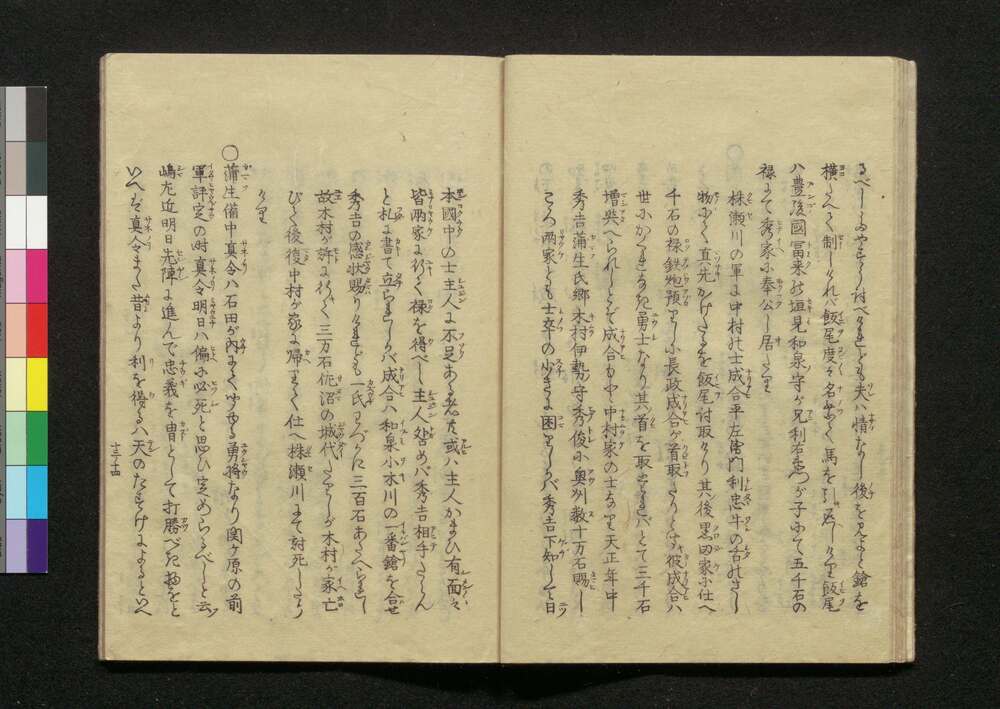 るべしふやすらう討べけれども夫ハ情なし後を見よと鎗を
横たへて制しけれバ飯尾度々名乗て馬を引返しけり飯尾
ハ豊後國冨来の垣見和泉守が兄利右衛門が子にて五千石の
禄にて秀家に奉公し居たり
株瀬川の軍に中村の士成合平左衛門利忠牛の舌のさし
物にて真先かけたるを飯尾討取けり其後黒田家に仕へ
千石の禄鉄炮預りし小長政成合が首取たりとは彼成合ハ
世にかくれなき勇士なり其首を取たれバとて三千石
増與へられしとぞ成合もと中村家の士なり天正年中
秀吉蒲生氏郷木村伊勢守秀俊に奥州数十万石賜し
ころ両家とも士卒の少きに困りしかバ秀吉下知して曰
本國中の士主人に不足ある者共或ハ主人かまひ有面々
皆両家に行て禄を得べし主人咎めバ秀吉相手たらん
と札に書て立られしかバ成合ハ和泉小木川の一番鎗を合せ
秀吉の感状賜りけれども一氏わづかに三百石あたへられし
故木村が許に行て三万石佐沼の城代たりしが木村が家亡
びて後復中村が家に帰りて仕へ株瀬川にて討死したり
けり
○蒲生備中真令ハ石田が内にて以の外なる勇将なり関ヶ原の前
軍評定の時真令明日ハ偏に必死と思ひ定めらるべしと云
嶋左近明日先陣に進んで忠義を冑として打勝べき物をと
いへバ真令また昔より利を得るハ天のたすけによるといへ
十三ノ十四